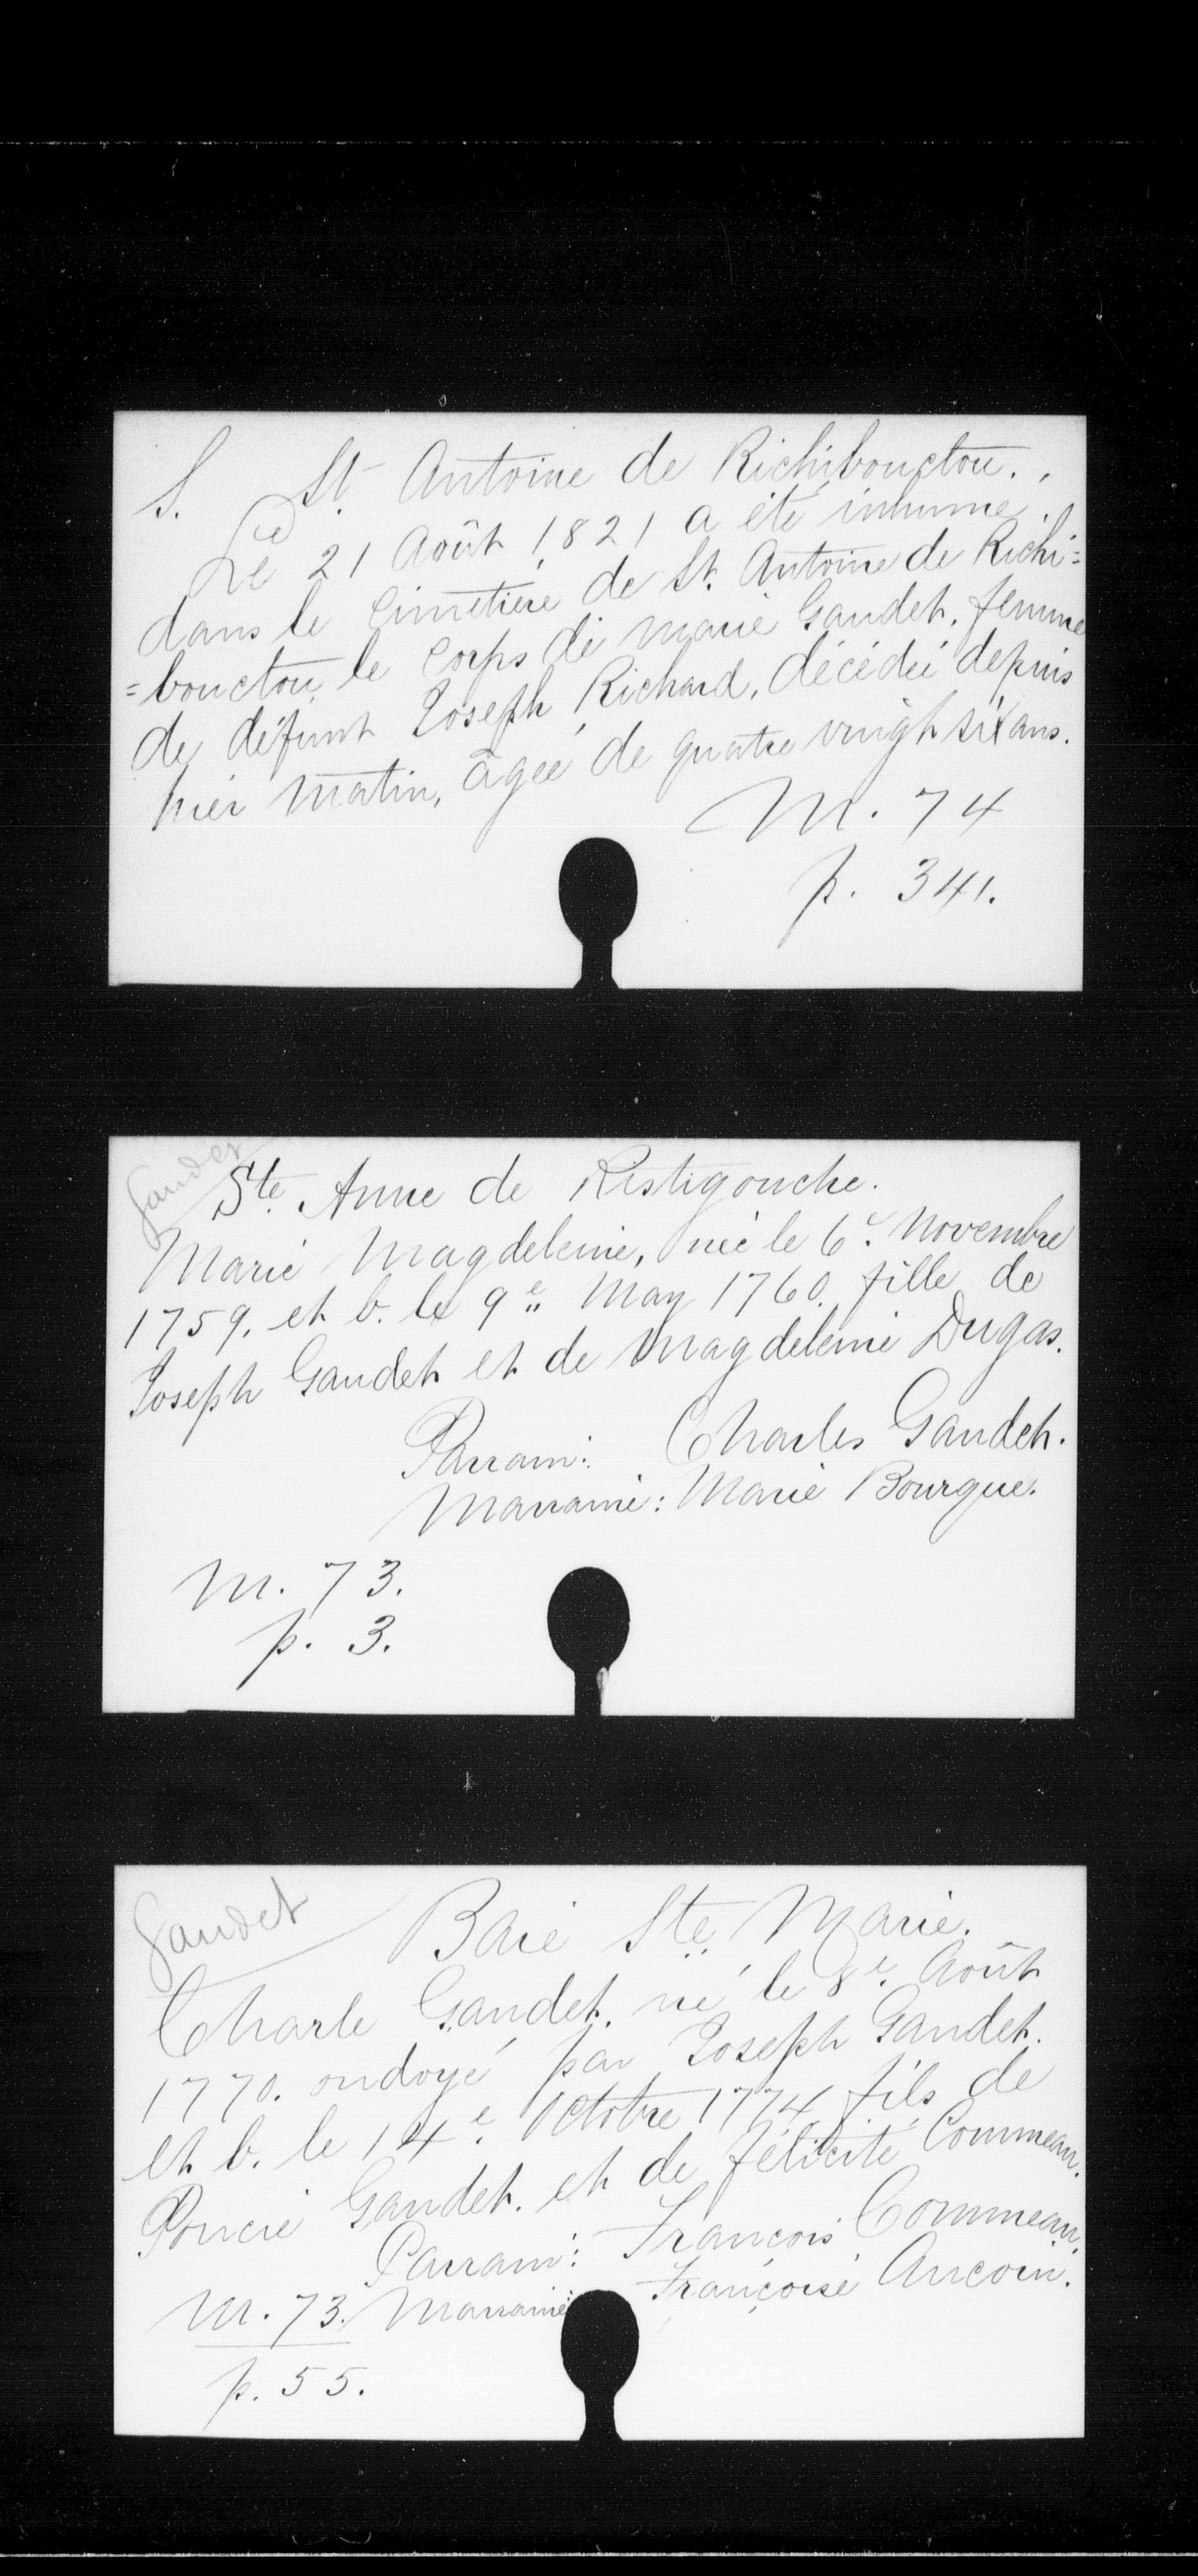 S. St. Antoine de Richibouctou.
Le 21 Août 1821 a été inhumé
dans le Cimetière de St. Antoine de Richi=
=bouctou le corps de Marie Gaudet, femme
de défunt Joseph Richard, décédée depuis
hier matin, âgée de quatre vingt six ans.
M. 74
p. 341.
Gaudet
Ste. Anne de Ristigouche.
Marie Magdeleine, née le 6e. Novembre
1759, et b. le 9e. May 1760. fille de
Joseph Gaudet et de Magdeleine Dugas.
Parrain: Charles Gaudet.
Marraine: Marie Bourgue.
M. 73.
p. 3.
Gaudet
Baie Ste. Marie.
Charle Gaudet, né le 8e. Août
1770. ondoyé par Joseph Gaudet.
et b. le 14e. Octobre 1774 fils de
Poncie Gaudet. et de félicité Commeau.
Parrain: François Commeau.
M. 73. Marraine Françoise Aucoin.
p. 55.